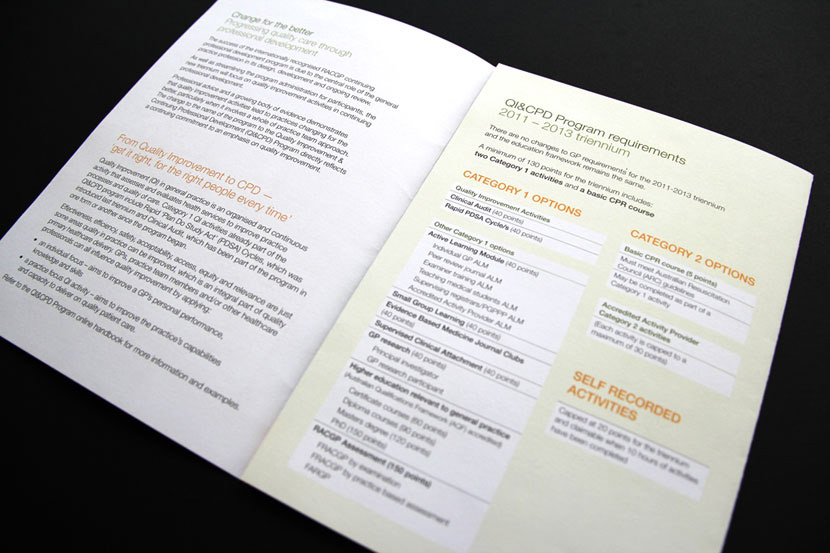 Change for the better
Progressing quality care through
professional development
The success of the internationally recognised RACGP continuing
professional development program is due to the central role of the general
practice profession in its design, development and ongoing review.
As well as streamlining the program administration for participants, the
new triennium will focus on quality improvement activities in continuing
professional development.
Professional advice and a growing body of evidence demonstrates
that quality improvement activities lead to practices changing for the
better, particularly when it involves a whole of practice team approach.
The change to the name of the program to the Quality Improvement &
Continuing Professional Development (QI&CPD) Program directly reflects
a continuing commitment to an emphasis on quality improvement.
From Quality Improvement to CPD –
'get it right, for the right people every time'
Quality Improvement (QI) in general practice is an organised and continuous
activity that assesses and evaluates health services to improve practice
processes and quality of care. Category 1 QI activities already part of the
QI&CPD program include Rapid 'Plan Do Study Act' (PDSA) Cycles, which was
introduced last triennium and Clinical Audit, which has been part of the program in
one form or another since the program began.
Effectiveness, efficiency, safety, acceptability, access, equity and relevance are just
some areas quality in practice can be improved, which is an integral part of quality
primary healthcare delivery. GPs, practice team members and/or other healthcare
professionals can all influence quality improvement by applying:
• an individual focus – aims to improve a GP's personal performance,
knowledge and skills
• a practice focus QI activity – aims to improve the practice's capabilities
and capacity to deliver on quality patient care.
Refer to the QI&CPD Program online handbook for more information and examples.
QI&CPD Program requirements
2011 – 2013 triennium
There are no changes to GP requirements for the 2011-2013 triennium
and the education framework remains the same.
A minimum of 130 points for the triennium includes:
two Category 1 activities and a basic CPR course
CATEGORY 1 OPTIONS
Quality Improvement Activities
Clinical Audit (40 points)
Rapid PDSA Cycle/s (40 points)
Other Category 1 options
Active Learning Module (40 points)
Individual GP ALM
Peer review journal ALM
Examiner training ALM
Teaching medical students ALM
Supervising registrars/PGPPP ALM
Accredited Activity Provider ALM
Small Group Learning (40 points)
Evidence Based Medicine Journal Clubs
(40 points)
Supervised Clinical Attachment (40 points)
GP research (40 points)
Principal investigator
GP research participant
Higher education relevant to general practice
(Australian Qualifications Framework (AQF) accredited)
Certificate courses (60 points)
Diploma courses (90 points)
Masters degree (120 points)
PhD (150 points)
RACGP Assessment (150 points)
FRACGP by examination
FRACGP by practice based assessment
FARGP
CATEGORY 2 OPTIONS
Basic CPR course (5 points)
Must meet Australian Resuscitation
Council (ARC) guidelines
May be completed as part of a
Category 1 activity
Accredited Activity Provider
Category 2 activities
(Each activity is capped to a
maximum of 30 points)
SELF RECORDED
ACTIVITIES
Capped at 20 points for the triennium
and claimable when 10 hours of activities
have been completed